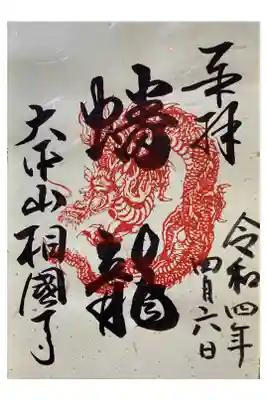 奉拝
令和四年
四月六日
蟠龍
大本山相國寺